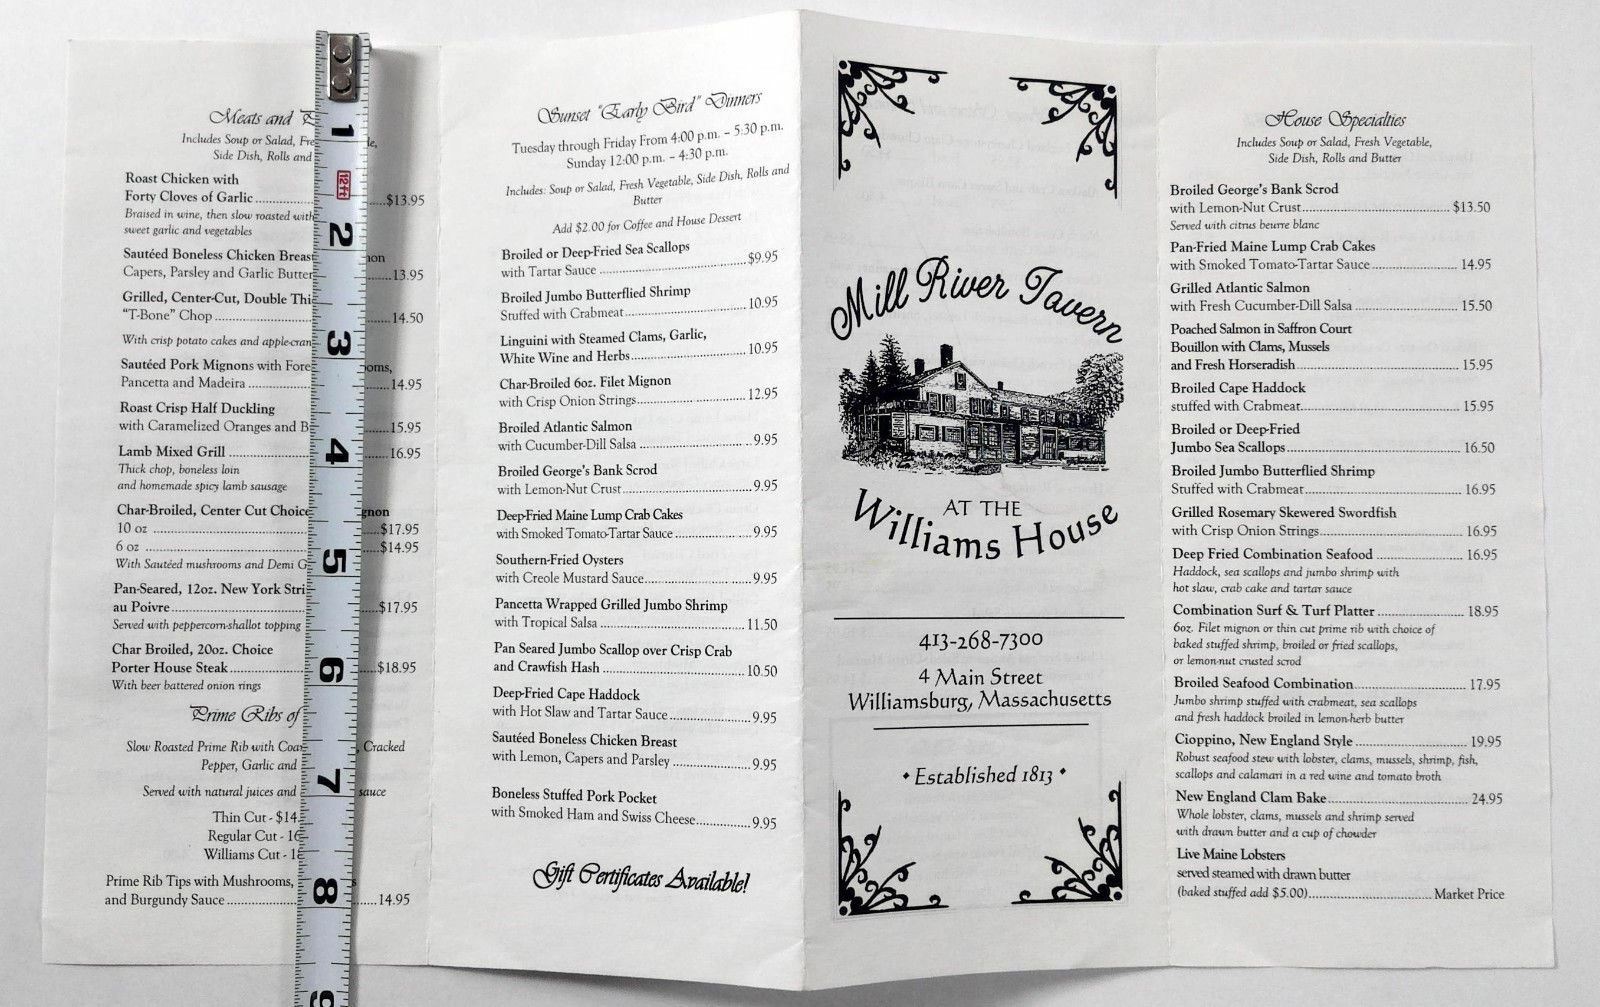 Meats and
Includes Soup or Salad,
Side Dish, Rolls and
Roast Chicken with
Forty Cloves of Garlic ..... $13.95
Braised in wine, then slow roasted with
sweet garlic and vegetables
Sautéed Boneless Chicken Breast
Capers, Parsley and Garlic Butter ..... 13.95
Grilled, Center-Cut, Double
"T-Bone" Chop ..... 14.50
With crisp potato cakes and
Sautéed Pork Mignons with
Pancetta and Madeira ..... 14.95
Roast Crisp Half Duckling
with Caramelized Oranges and ..... 15.95
Lamb Mixed Grill ..... 16.95
Thick chop, boneless loin
and homemade spicy lamb sausage
Char-Broiled, Center Cut Choice
10 oz ..... $17.95
6 oz ..... $14.95
With Sautéed mushrooms and Demi
Pan-Seared, 12oz. New York
au Poivre ..... $17.95
Served with peppercorn-shallot topping
Char Broiled, 20oz. Choice
Porter House Steak ..... $18.95
With beer battered onion rings
Prime Ribs of
Slow Roasted Prime Rib with Cracked
Pepper, Garlic and
Served with natural juices and sauce
Thin Cut - $14.
Regular Cut -
Williams Cut -
Prime Rib Tips with Mushrooms,
and Burgundy Sauce ..... 14.95
1
12ft
2
3
4
5
6
7
8
9
Sunset "Early Bird" Dinners
Tuesday through Friday From 4:00 p.m. – 5:30 p.m.
Sunday 12:00 p.m. – 4:30 p.m.
Includes: Soup or Salad, Fresh Vegetable, Side Dish, Rolls and
Butter
Add $2.00 for Coffee and House Dessert
Broiled or Deep-Fried Sea Scallops
with Tartar Sauce ..... $9.95
Broiled Jumbo Butterflied Shrimp
Stuffed with Crabmeat ..... 10.95
Linguini with Steamed Clams, Garlic,
White Wine and Herbs ..... 10.95
Char-Broiled 6oz. Filet Mignon
with Crisp Onion Strings ..... 12.95
Broiled Atlantic Salmon
with Cucumber-Dill Salsa ..... 9.95
Broiled George's Bank Scrod
with Lemon-Nut Crust ..... 9.95
Deep-Fried Maine Lump Crab Cakes
with Smoked Tomato-Tartar Sauce ..... 9.95
Southern-Fried Oysters
with Creole Mustard Sauce ..... 9.95
Pancetta Wrapped Grilled Jumbo Shrimp
with Tropical Salsa ..... 11.50
Pan Seared Jumbo Scallop over Crisp Crab
and Crawfish Hash ..... 10.50
Deep-Fried Cape Haddock
with Hot Slaw and Tartar Sauce ..... 9.95
Sautéed Boneless Chicken Breast
with Lemon, Capers and Parsley ..... 9.95
Boneless Stuffed Pork Pocket
with Smoked Ham and Swiss Cheese ..... 9.95
Gift Certificates Available!
Mill River Tavern
AT THE
Williams House
413-268-7300
4 Main Street
Williamsburg, Massachusetts
• Established 1813 •
House Specialties
Includes Soup or Salad, Fresh Vegetable,
Side Dish, Rolls and Butter
Broiled George's Bank Scrod
with Lemon-Nut Crust ..... $13.50
Served with citrus beurre blanc
Pan-Fried Maine Lump Crab Cakes
with Smoked Tomato-Tartar Sauce ..... 14.95
Grilled Atlantic Salmon
with Fresh Cucumber-Dill Salsa ..... 15.50
Poached Salmon in Saffron Court
Bouillon with Clams, Mussels
and Fresh Horseradish ..... 15.95
Broiled Cape Haddock
stuffed with Crabmeat ..... 15.95
Broiled or Deep-Fried
Jumbo Sea Scallops ..... 16.50
Broiled Jumbo Butterflied Shrimp
Stuffed with Crabmeat ..... 16.95
Grilled Rosemary Skewered Swordfish
with Crisp Onion Strings ..... 16.95
Deep Fried Combination Seafood ..... 16.95
Haddock, sea scallops and jumbo shrimp with
hot slaw, crab cake and tartar sauce
Combination Surf & Turf Platter ..... 18.95
6oz. Filet mignon or thin cut prime rib with choice of
baked stuffed shrimp, broiled or fried scallops,
or lemon-nut crusted scrod
Broiled Seafood Combination ..... 17.95
Jumbo shrimp stuffed with crabmeat, sea scallops
and fresh haddock broiled in lemon-herb butter
Cioppino, New England Style ..... 19.95
Robust seafood stew with lobster, clams, mussels, shrimp, fish,
scallops and calamari in a red wine and tomato broth
New England Clam Bake ..... 24.95
Whole lobster, clams, mussels and shrimp served
with drawn butter and a cup of chowder
Live Maine Lobsters
served steamed with drawn butter
(baked stuffed add $5.00) ..... Market Price